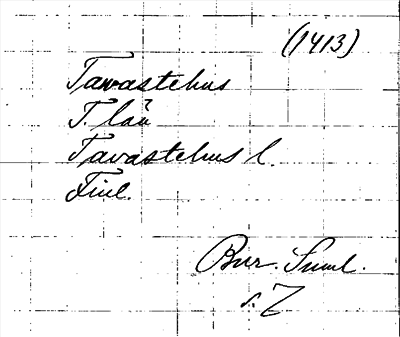 (1413)
Tavastehus
T. län
Tavastehus l.
Finl.
Bur. Suml.
s. 7